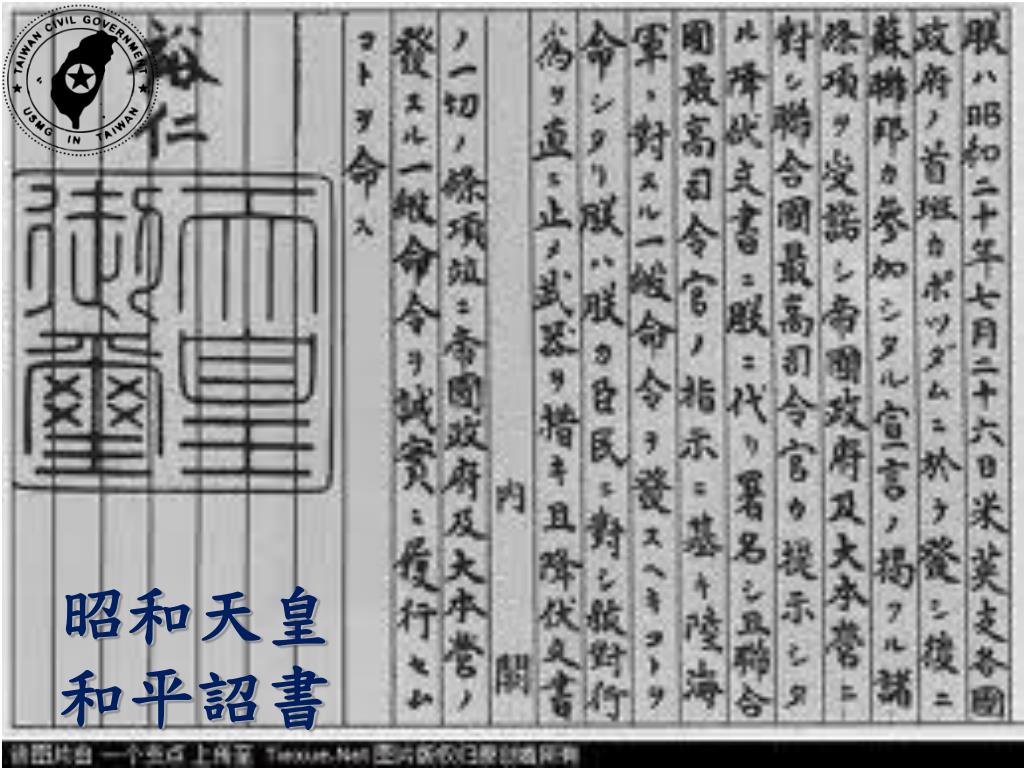 朕ハ昭和二十年七月二十六日米英支各國
政府ノ首班カポツダムニ於テ發シ後ニ
蘇聯邦カ參加シタル宣言ノ掲クル諸
條項ヲ受諾シ帝國政府及大本營ニ
對シ聯合國最高司令官カ提示シタ
ル降伏文書ニ朕ニ代リ署名シ且聯合
國最高司令官ノ指示ニ基キ陸海
軍ニ對スル一般命令ヲ發スヘキコトヲ
命シタリ朕ハ朕カ臣民ニ對シ敵對行
爲ヲ直ニ止メ武器ヲ措キ且降伏文書
内閣
ノ一切ノ條項竝ニ帝國政府及大本營ノ
發スル一般命令ヲ誠實ニ履行セム
コトヲ命ス
裕仁
天皇
御璽
TAIWAN CIVIL GOVERNMENT
USMG IN TAIWAN
昭和天皇
和平詔書
该图片由 一个支点 上传至 Tiexue.Net 图片版权归原创者所有